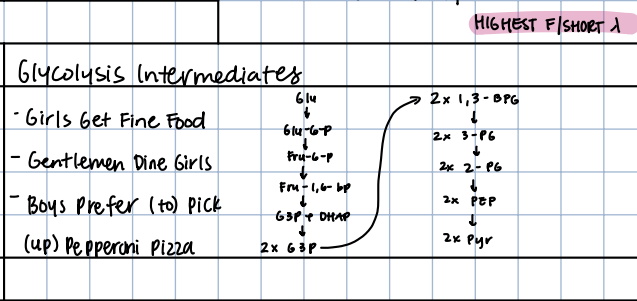 HIGHEST F/SHORT λ
Glycolysis Intermediates
- Girls Get Fine Food
- Gentlemen Dine Girls
- Boys Prefer (to) Pick
(up) Pepperoni Pizza
Glu
Glu-6-P
Fru-6-P
Fru-1,6-bp
G3P + DHAP
2x G3P
2x 1,3-BPG
2x 3-PG
2x 2-PG
2x PEP
2x Pyr